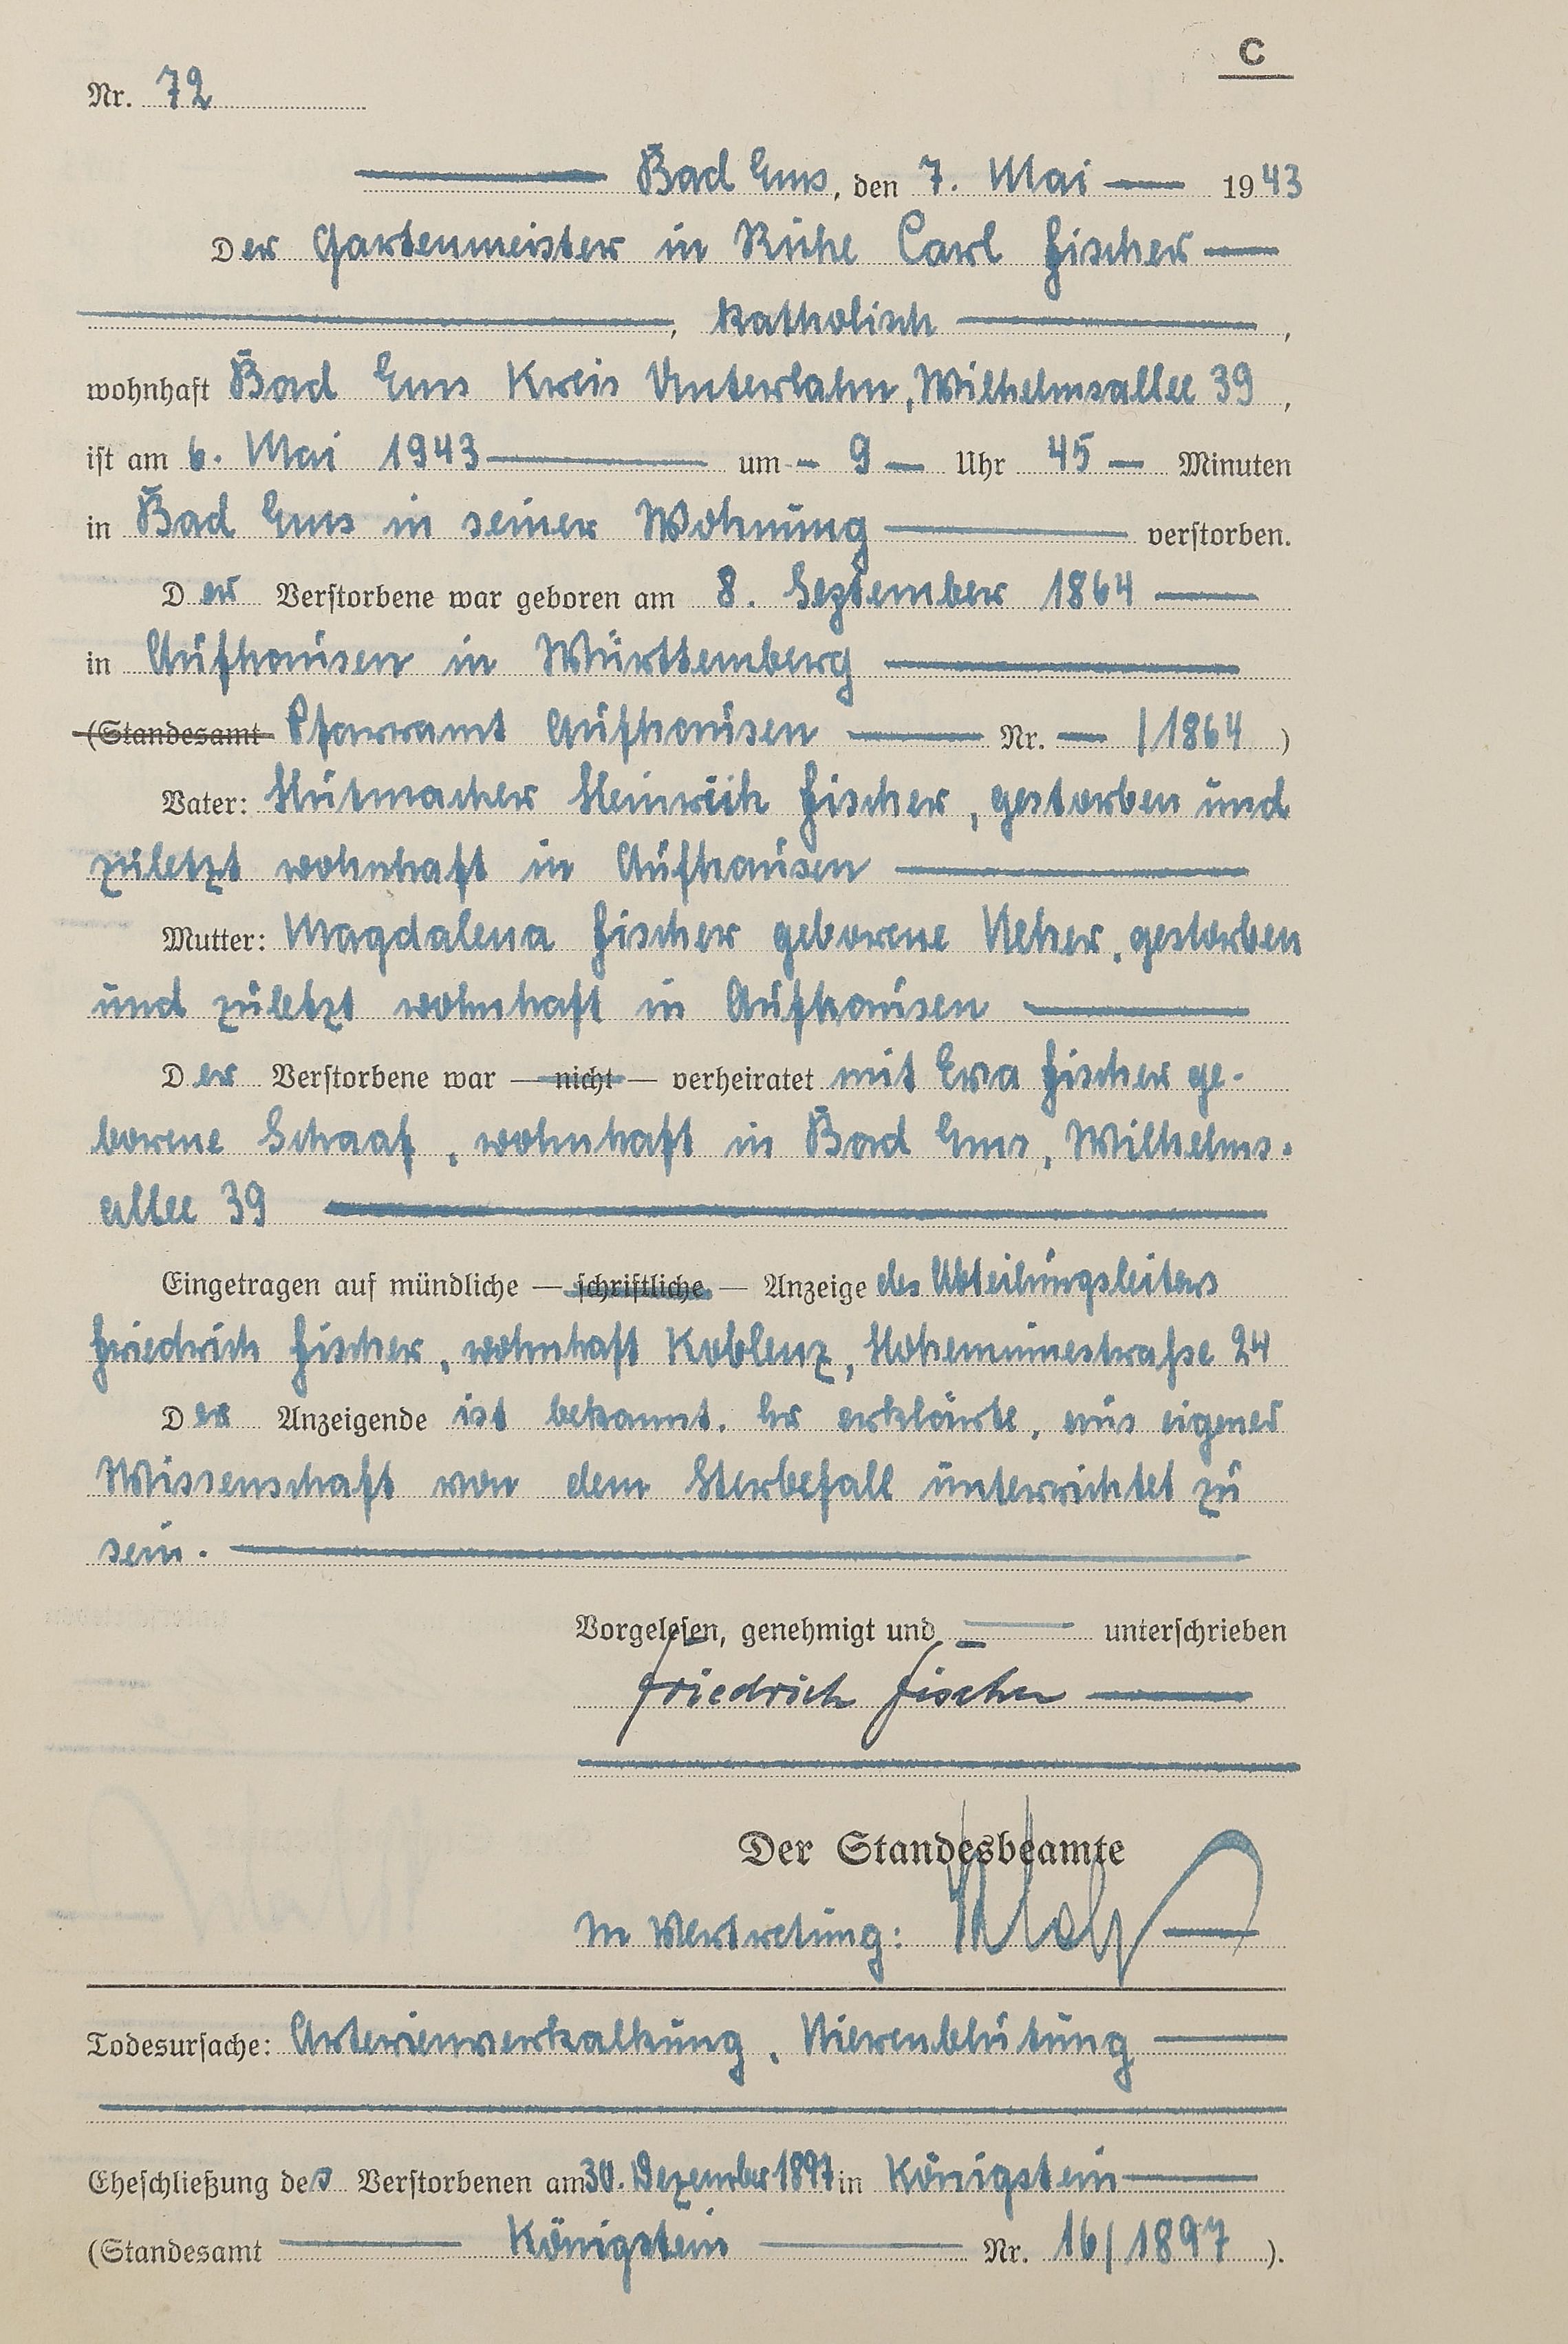 C
Nr. 72
Bad Ems, den 7. Mai 1943
Der Gartenmeister in Ruhe Carl Fischer
, katholisch ,
wohnhaft Bad Ems Kreis Unterlahn, Wilhelmsallee 39 ,
ist am 6. Mai 1943 um 9 Uhr 45 Minuten
in Bad Ems in seiner Wohnung verstorben.
Der Verstorbene war geboren am 8. September 1864
in Aufhausen in Württemberg
(Standesamt Pfarramt Aufhausen Nr. — /1864 )
Vater: Hutmacher Heinrich Fischer, gestorben und
zuletzt wohnhaft in Aufhausen
Mutter: Magdalena Fischer geborene Neher, gestorben
und zuletzt wohnhaft in Aufhausen
Der Verstorbene war — nicht — verheiratet mit Eva Fischer ge-
borene Schaaf, wohnhaft in Bad Ems, Wilhelms-
allee 39
Eingetragen auf mündliche — schriftliche — Anzeige des Abteilungsleiters
Friedrich Fischer, wohnhaft Koblenz, 24
Der Anzeigende ist bekannt. Er erklärte, aus eigener
Wissenschaft von dem Sterbefall unterrichtet zu
sein.
Vorgelesen, genehmigt und unterschrieben
Friedrich Fischer
Der Standesbeamte
In Vertretung:
Todesursache: Arterienverkalkung, Nierenblutung
Eheschließung des Verstorbenen am 30. Dezember 1897 in Königstein
(Standesamt Königstein Nr. 16/1897 ).